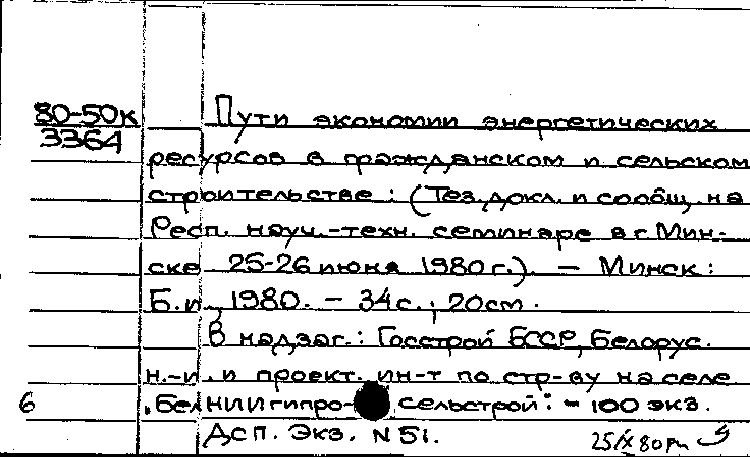 80-50к
3364
Пути экономии энергетических
ресурсов в гражданском и сельском
строительстве: (Тез. докл. и сообщ. на
Респ. науч.-техн. семинаре в г. Мин-
ске 25-26 июня 1980 г.). — Минск:
Б.и., 1980. - 34 с.; 20 см.
В надзаг.: Госстрой БССР, Белорус.
н.-и. и проект. ин-т по стр-ву на селе
. БелНИИгипро- сельстрой: - 100 экз.
6
Дсп. Экз. N 51.
25/IX 80